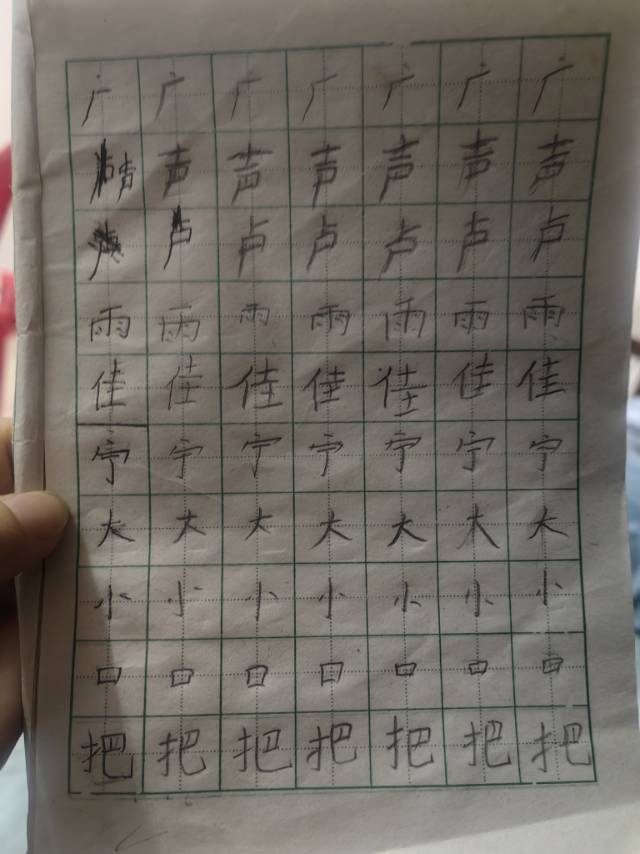 广广广广广广广
声声声声声声
卢卢卢卢卢卢
雨雨雨雨雨雨雨
佳佳佳佳佳佳佳
宁宁宁宁宁宁宁
大大大大大大大
小小小小小小小
口口口口口口口
把把把把把把把